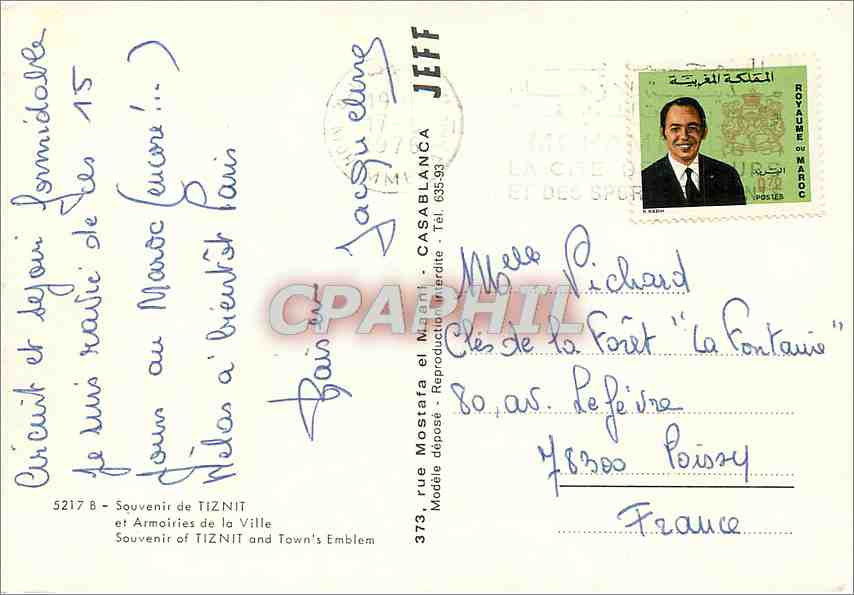 Circuit et séjour formidable
Je suis ravie de ces 15
jours au Maroc (encore !...)
Hélas à bientôt Paris
Baisers
Jacqueline
5217 B - Souvenir de TIZNIT
et Armoiries de la Ville
Souvenir of TIZNIT and Town's Emblem
373, rue Mostafa el Maani - CASABLANCA JEFF
Modèle déposé - Reproduction interdite - Tél. 635-93
CPAPHIL
المملكة المغربية
ROYAUME DU MAROC
البريد
0,70
POSTES
LA CITE
ET DES SPORTS
Melle Pichard
Clos de la Forêt "La Fontaine"
80, av. Lefèvre
78300 Poissy
France